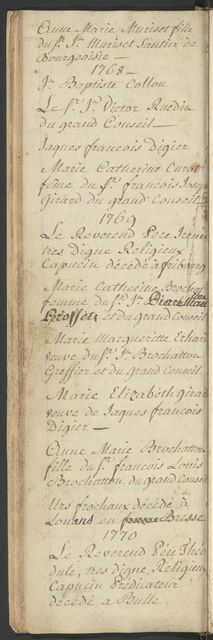 Anne Marie Muriset fille
du Sr. Jn. Muriset Sautier de
Bourgeoisie —
1768 —
Jn. Baptiste Collou
Le Sr. Jn. Victor Ruedin
du grand Conseil —
Jaques francois Digier —
Marie Catherine
fame du Sr. francois
Girard du grand Conseil
1769
Le Reverend Pere
tres digne Religieux
Capucin décédé a fribourg
Marie Catherine
femme du Sr. Jn.
et du grand Conseil
Marie Margueritte
veuve du Sr. Jn. Brochatton
Greffier et du grand Conseil
Marie Elizabeth Girar
veuve de Jaques francois
Digier —
Anne Marie Brochatton
fille du Sr. francois Louis
Brochatton du grand Conseil
Urs frochaux décédé à
en Bresse
1770
Le Reverend Pere Théo
dule, tres digne Religieux
Capucin Predicateur
décédé a Bulle